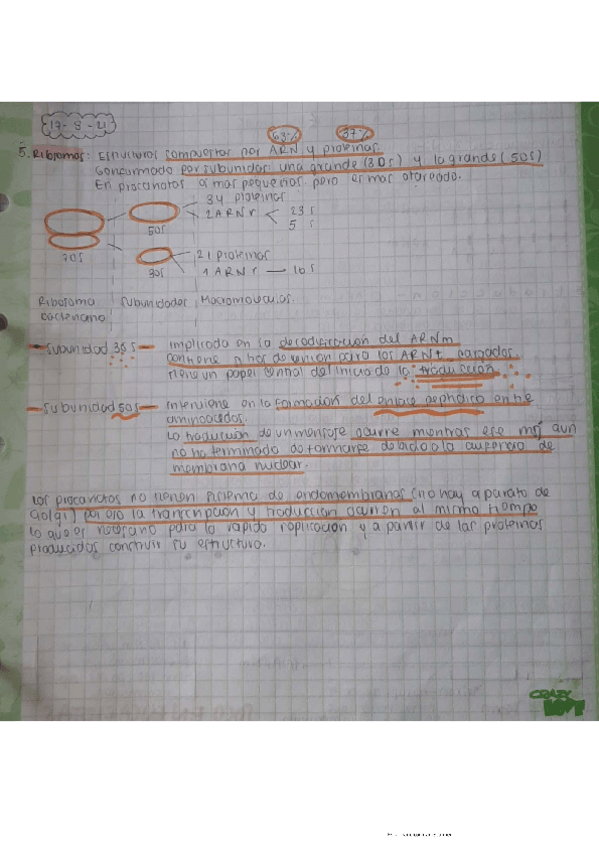 17-8-21
63% 37%
5. Ribosomas: Estructuras compuestas por ARN y proteinas.
Conformado por subunidas: una grande (30s) y la grande (50s)
En procariotas es mas pequeños pero es mas atareado.
34 proteinas
2 ARNr 23 s
5 s
50s
70s
21 proteinas
30s 1 ARNr 16 s
Ribosoma Subunidades Macromoleculas.
bacteriano
Subunidad 30 s implicada en la decodificacion del ARNm
contiene sitios de union para los ARNt cargados
tiene un papel central del inicio de la traduccion
Subunidad 50s Interviene en la formacion del enlace peptidico entre
aminoacidos.
La traduccion de un mensaje ocurre mientras ese msj aun
no ha terminado de formarse debido a la ausencia de
membrana nuclear.
Los procariotas no tienen sistema de endomembranas (no hay aparato de
Golgi) por eso la transcripcion y traduccion ocurren al mismo tiempo
lo que es necesario para la rapida replicacion y a partir de las proteinas
producidas construir su estructura.
CRAZY